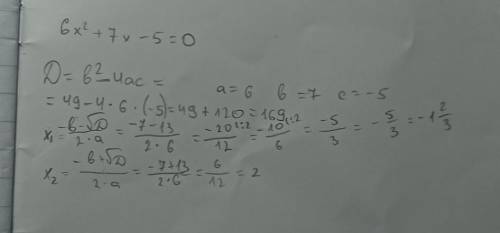 6x² + 7x - 5 = 0
D = b² - 4ac =
a = 6   b = 7   c = -5
= 49 - 4 · 6 · (-5) = 49 + 120 = 169
x₁ = (-b - √D)/(2·a) = (-7 - 13)/(2·6) = (-20 :2)/12 = (-10 :2)/6 = -5/3 = -5/3 = -1 2/3
x₂ = (-b + √D)/(2·a) = (-7 + 13)/(2·6) = 6/12 = 2